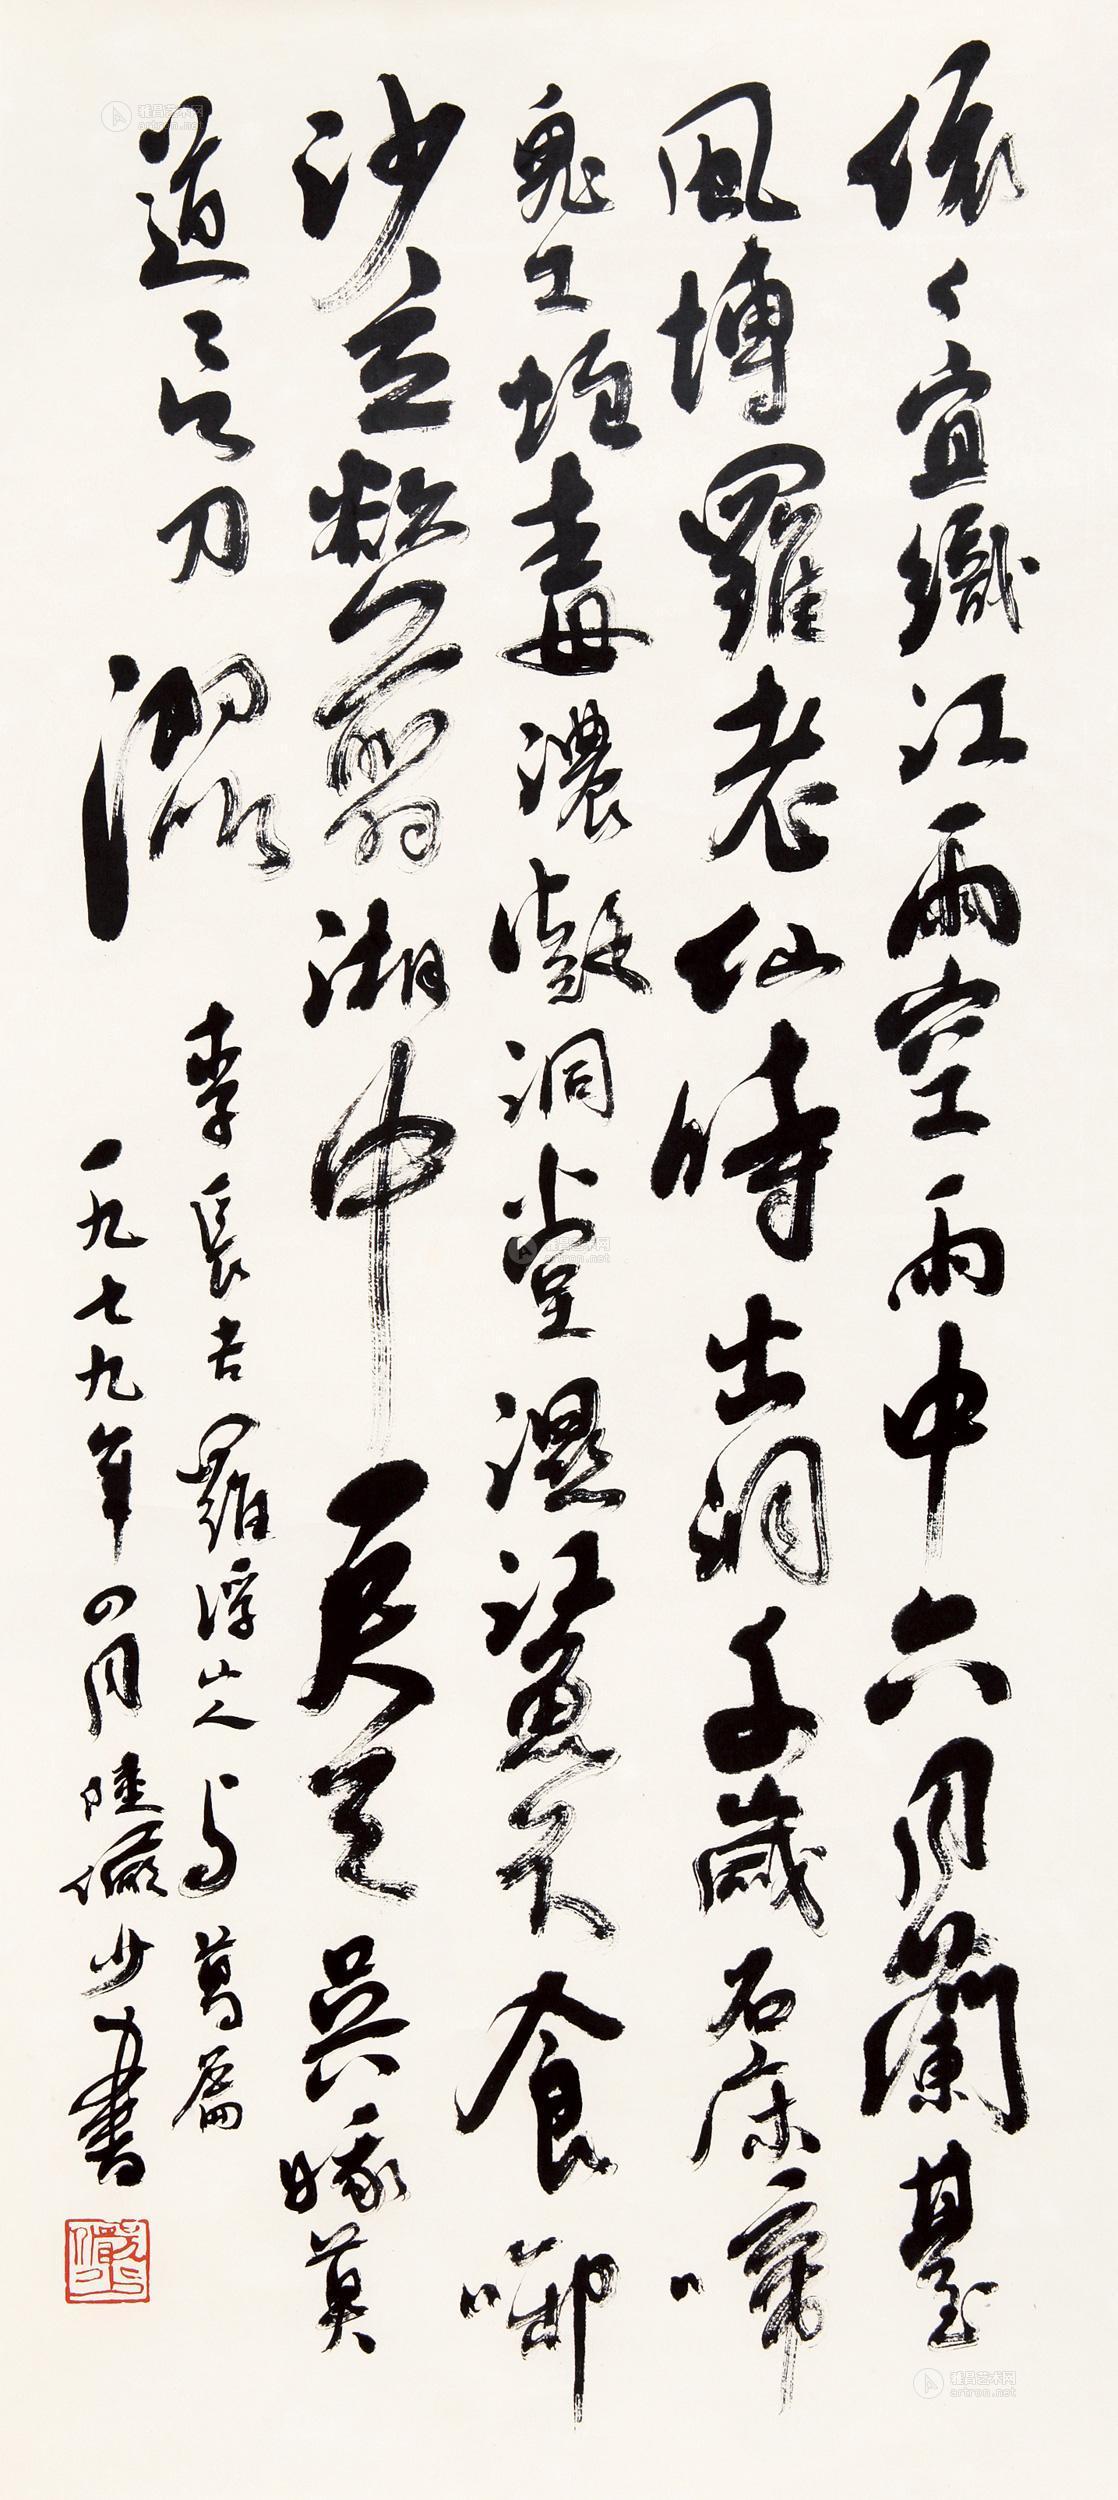 依々宜織江雨空雨中六月蘭臺
風博羅老仙時出洞千歲石床啼
鬼工蛇毒濃凝洞堂濕江魚不食啣
沙立欲剪湘中一尺天吳娥莫
道吳刀澀
李長吉羅浮山人与葛篇
一九七九年四月陸儼少書
雅昌艺术网
artron.net
雅昌艺术网
artron.net
雅昌艺术网
artron.net